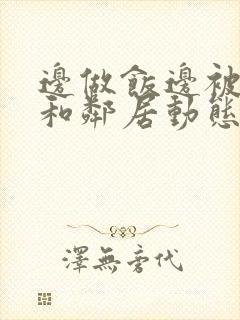 邊做飯邊被
和鄰居動態
澤無旁代